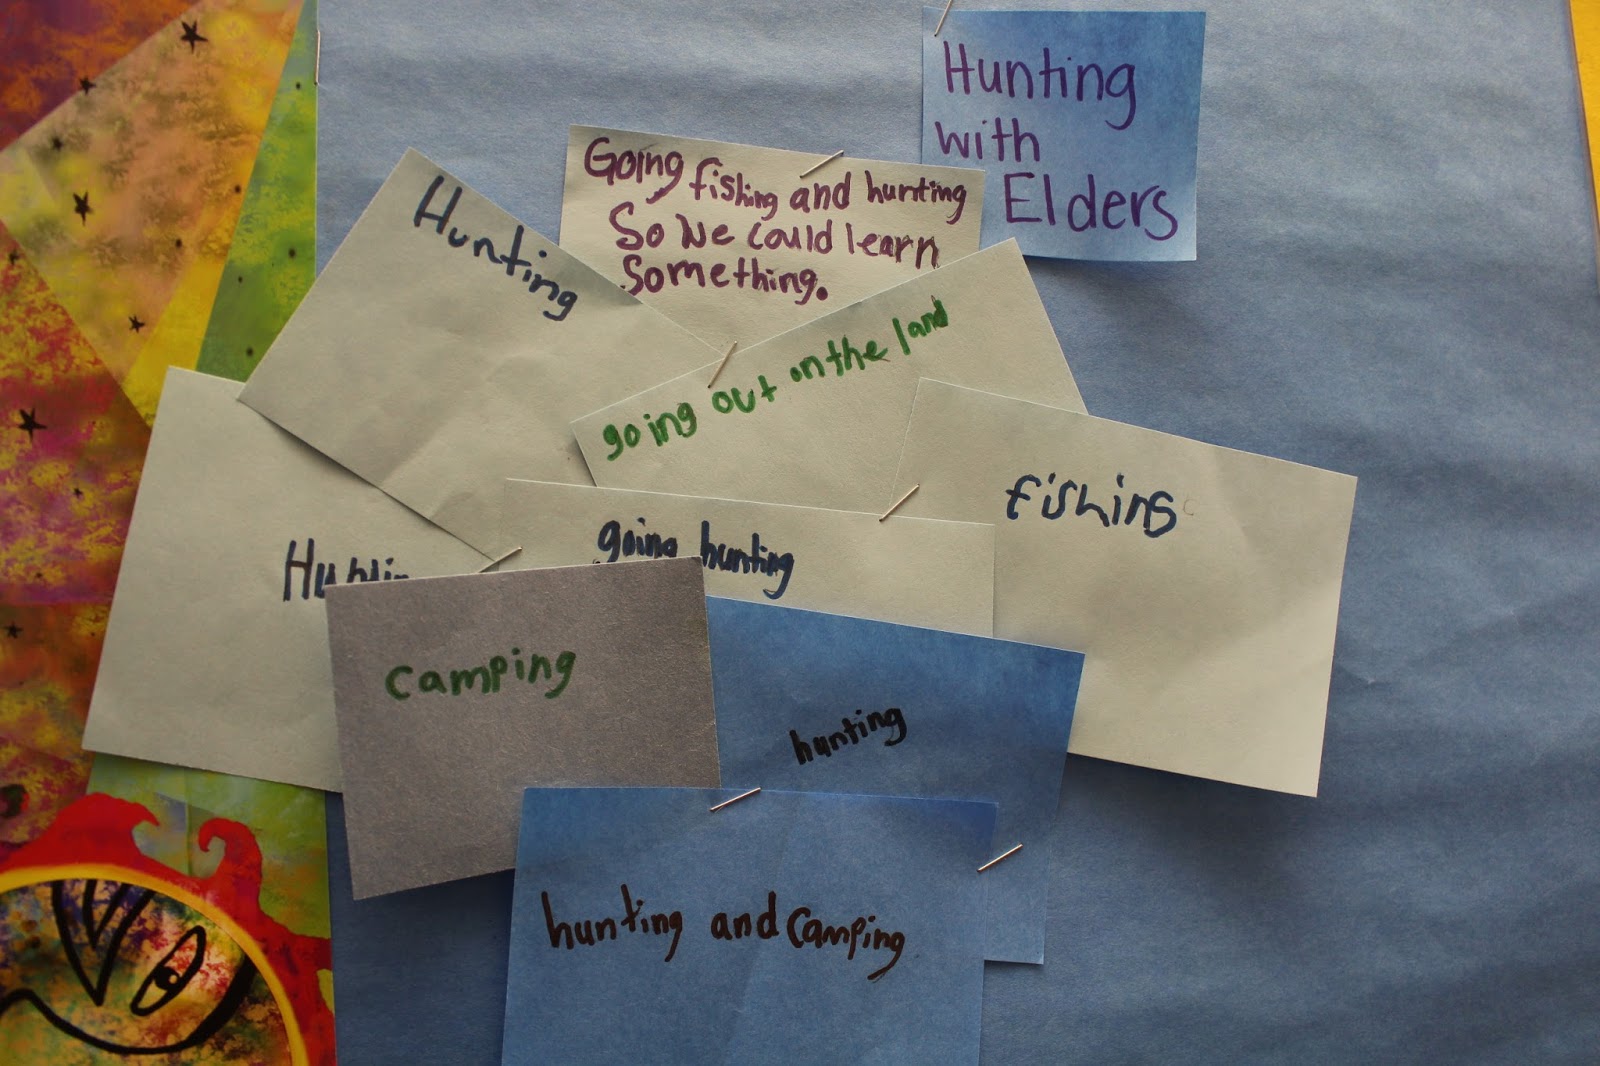 Hunting
with
Elders
Going fishing and hunting
So we could learn
Something.
Hunting
going out on the land
fishing
going hunting
camping
hunting
hunting and camping